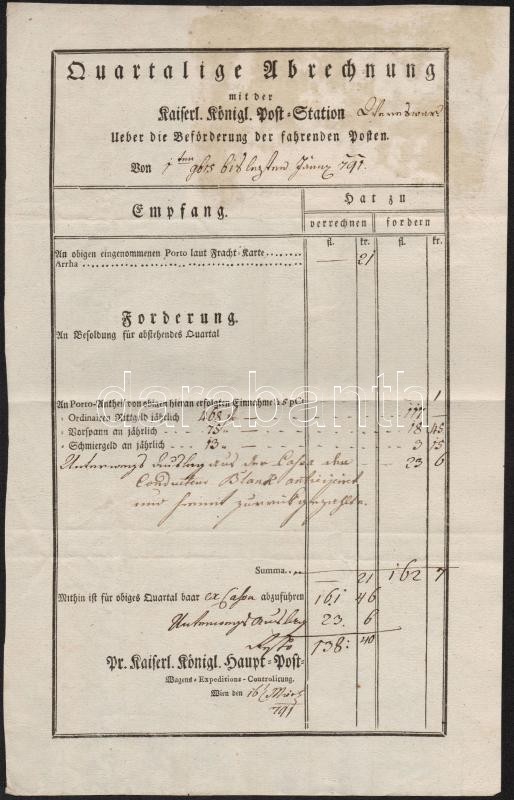 Quartalige Abrechnung
mit der
Kaiserl. Königl. Post-Station
Ueber die Beförderung der fahrenden Posten.
Von 1ten 9bris bis letzten Jänner 791.
Empfang.
Hat zu
verrechnen fordern
fl. kr. fl. kr.
An obigen eingenommenen Porto laut Fracht-Karte — 21
Arrha
Forderung.
An Besoldung für abstehendes Quartal
An Porto-Antheil von obigen hieran erfolgten Einnehme à 5 pCt. 1
- Ordinaires Rittgeld jährlich 468 117 —
- Vorspann an jährlich 75 18 45
- Schmiergeld an jährlich 13 3 15
Unterwegs Auslag aus der Cassa dem 23 6
Conducteur Blank anticipiret
und hiemit zurückgezahlte.
Summa — 21 162 7
Mithin ist für obiges Quartal baar ex Cassa abzuführen 161 46
Unterwegs Auslag 23. 6
Resto 138: 40
Pr. Kaiserl. Königl. Haupt-Post-
Wagens-Expeditions-Controlirung.
Wien den 16 März
791
darabanth